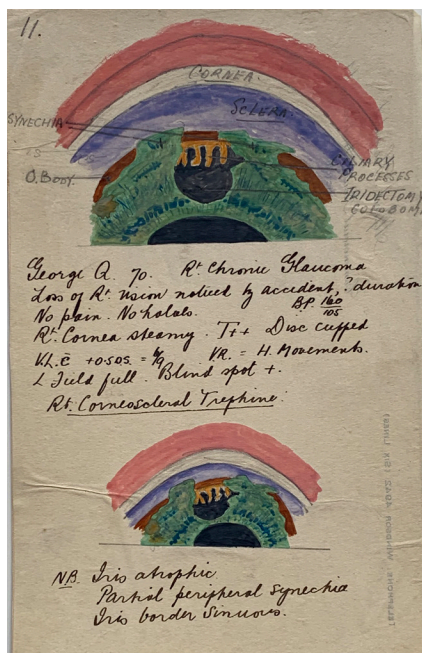 11.
CORNEA.
SCLERA.
SYNECHIA
O. BODY.
CILIARY
PROCESSES
IRIDECTOMY
COLOBOMA
George Q. 70. Rt Chronic Glaucoma
Loss of Rt vision noticed by accident, ? duration
No pain. No halos. BP. 160/105
Rt Cornea steamy. T++ Disc cupped
V.L. c̄ +0.5DS. = 6/9 V.R. = H. Movements.
L Field full. Blind spot +.
Rt. Corneoscleral Trephine.
NB. Iris atrophic
Partial peripheral synechia
Iris border sinuous.